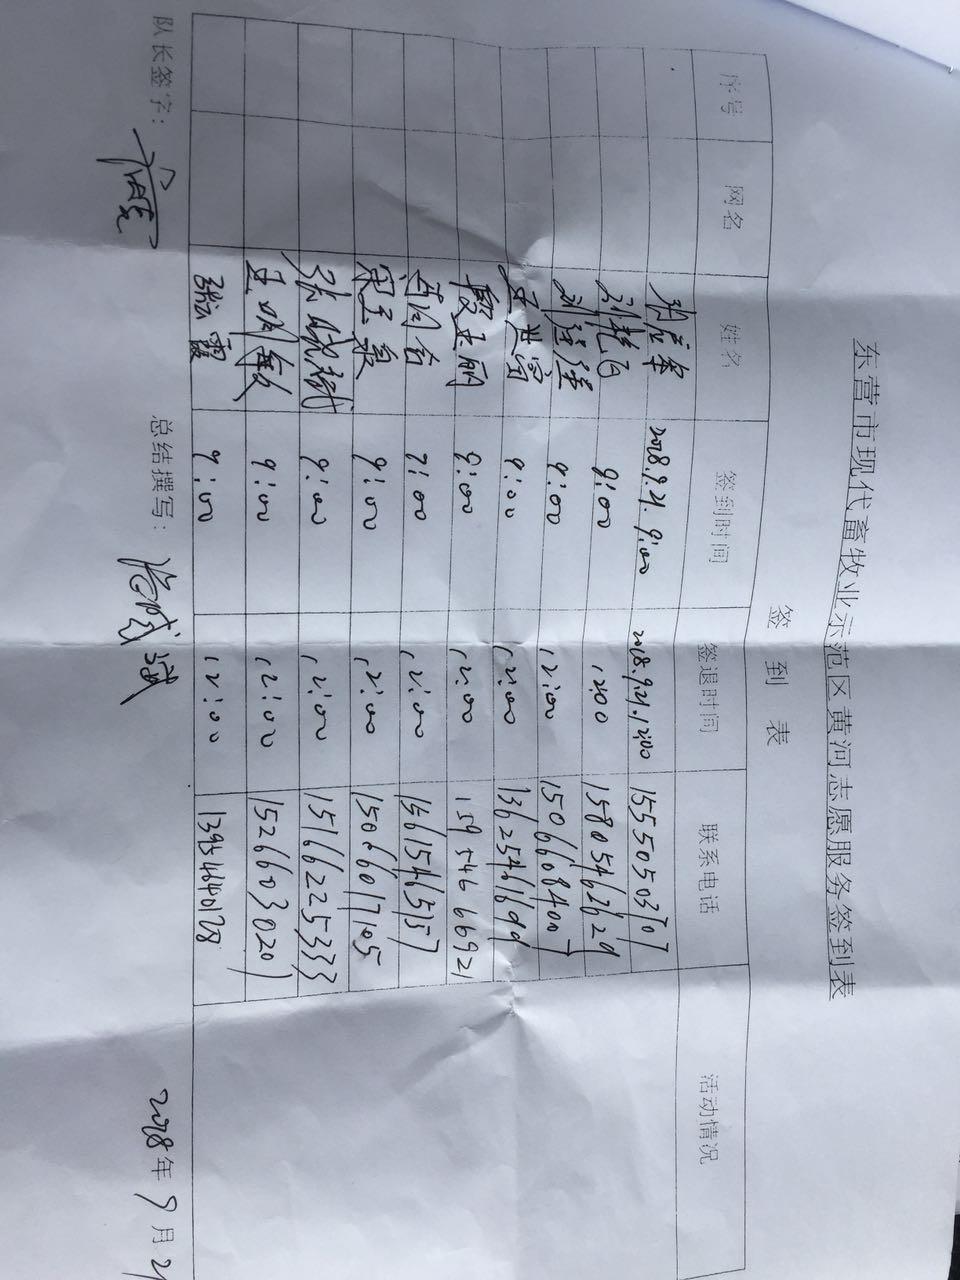 东营市现代畜牧业示范区黄河志愿服务签到表
签 到 表
序号 网名 姓名 签到时间 签退时间 联系电话 活动情况
2018.9.21. 9:00 2018.9.21. 12:00 15550503707
9:00 12:00 15805462629
9:00 12:00 15066084007
9:00 12:00
殷玉丽 9:00 12:00 15954666921
9:00 12:00 15615465157
宋玉泉 9:00 12:00 15066017105
张成斌 9:00 12:00 15166225333
王明敏 9:00 12:00 15266030201
张霞 9:00 12:00 13954640128
队长签字: 总结撰写: 张成斌 2018年9月21